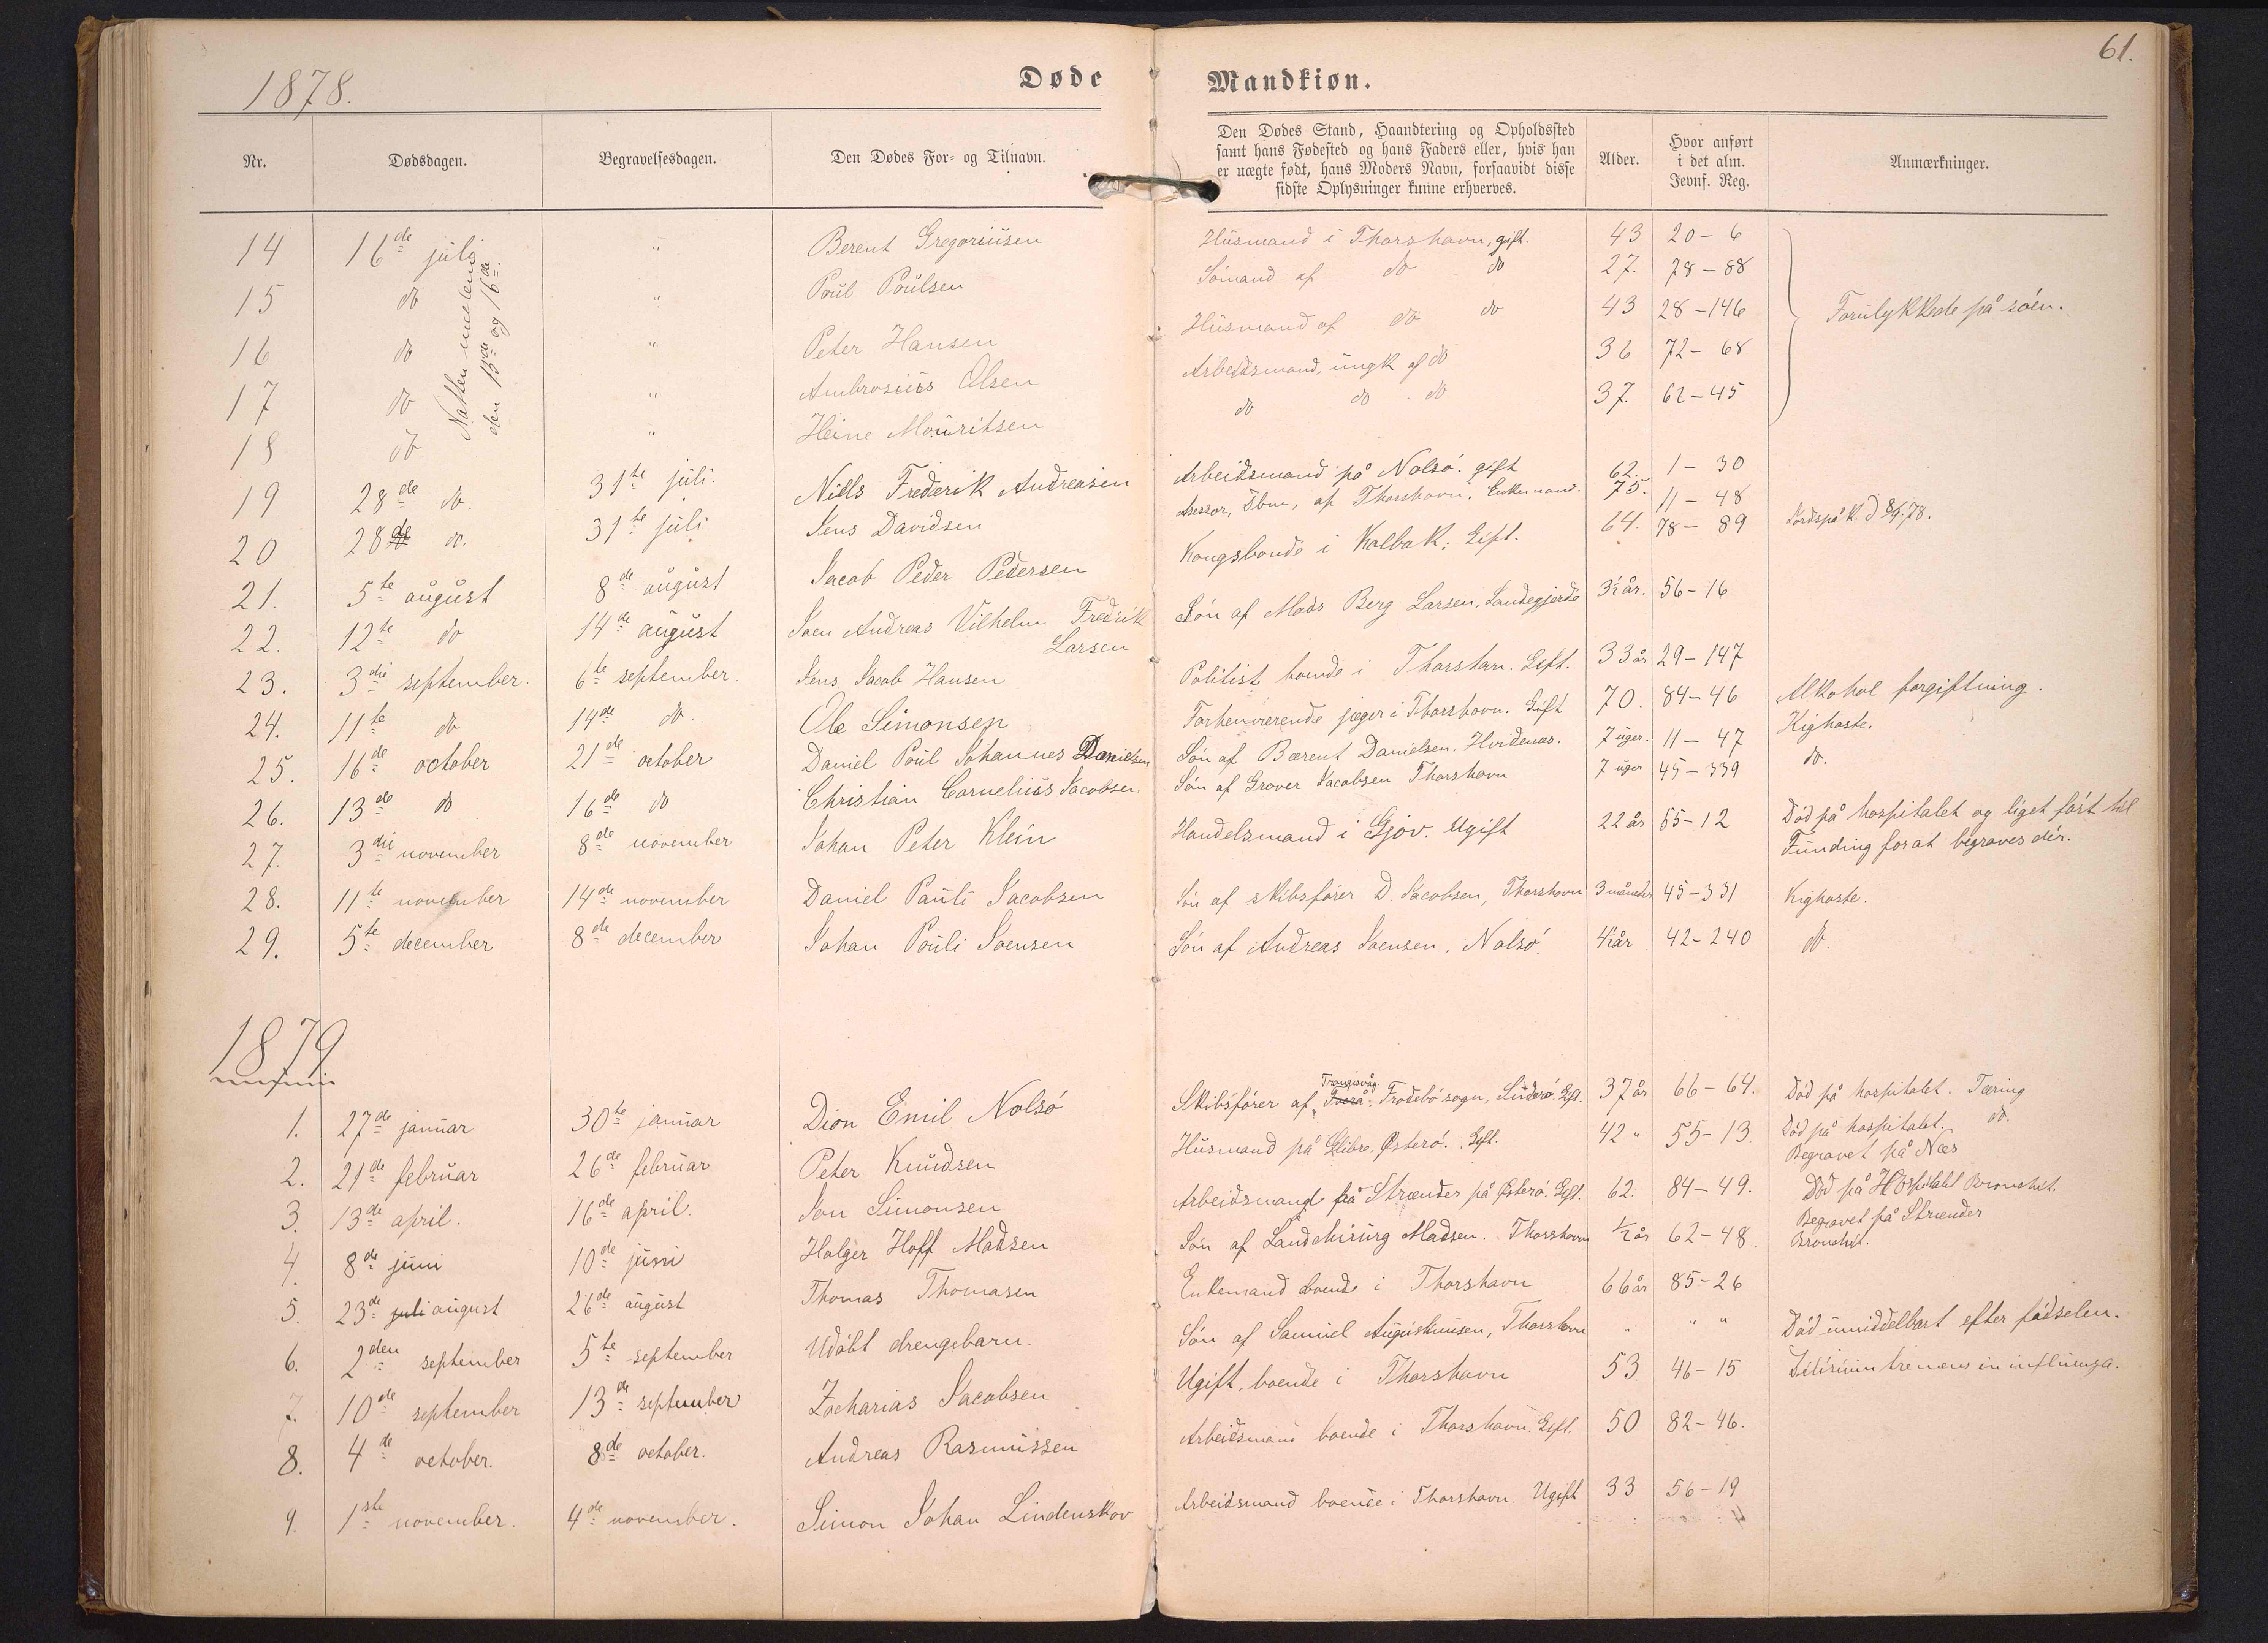 61.
1878.
Døde Mandkiøn.
Nr. Dødsdagen. Begravelsesdagen. Den Dødes For- og Tilnavn. Den Dødes Stand, Haandtering og Opholdssted samt hans Fødested og hans Faders eller, hvis han er uægte født, hans Moders Navn, forsaavidt disse sidste Oplysninger kunne erhverves. Alder. Hvor anført i det alm. Jevnf. Reg. Anmærkninger.
14 16de juli " Berent Gregoriusen Husmand i Thorshavn, gift. 43 20-6
Natten mellem den 15de og 16de.
Forulykkede på söen.
15 do " Poul Poulsen Sömand af do do 27. 78-88
16 do " Peter Hansen Husmand af do do 43 28-146
17 do " Ambrosius Olsen Arbeidsmand, ungk af do 36 72-68
18 do " Heine Mouritsen do do do 37. 62-45
19 28de do. 31te juli. Niels Frederik Andreasen Arbeidsmand på Nolsö. gift 62. 1-30
20 28de do. 31te juli Jens Davidsen Assessor, Dbm, af Thorshavn. Enkemand. 75. 11-48
21. 5te august 8de august Jacob Peder Pedersen Kongsbonde i Kalbak; Gift. 64. 78-89
22. 12te do 14de august Joen Andreas Vilhelm Fredrik Larsen Sön af Mads Berg Larsen, Sandegjerde 3½ år. 56-16
23. 3die september. 6te september. Jens Jacob Hansen Politist boende i Thorshavn. Gift. 33 år 29-147 Alkohol forgiftning.
24. 11te do 14de do. Ole Simonsen Forhenværende jæger i Thorshavn. Gift 70. 84-46
25. 16de october 21de october Daniel Poul Johannes Danielsen Sön af Bærent Danielsen. Hvidenæs. 7 uger. 11-47 Kighoste.
26. 13de do 16de do Christian Cornelius Jacobsen Sön af Grover Jacobsen Thorshavn 7 uger 45-339 do.
27. 3die november 8de november Johan Peter Klein Handelsmand i Gjov. Ugift 22 år 55-12 Död på hospitalet og liget fört til Funding for at begraves dér.
28. 11te november 14de november Daniel Pauli Jacobsen Sön af skibsförer D. Jacobsen, Thorshavn 3 måneder 45-331 Kighoste.
29. 5te december 8de december Johan Pouli Joensen Sön af Andreas Joensen, Nolsö. ½ år 42-240 do.
1879
1. 27de januar 30te januar Dion Emil Nolsö Skibsförer af Trangisvåg Frodebö sogn, Suderö Gift. 37 år 66-64. Död på hospitalet. Tæring
2. 21de februar 26de februar Peter Knudsen Husmand på Glibre, Österö. Gift. 42 " 55-13 Död på hospitalet. do. Begravet på Næs
3. 13de april. 16de april. Jon Simonsen Arbeidsmand på Strænder på Österö. Gift. 62. 84-49. Död på Hospitalet Bronchit. Begravet på Strænder
4. 8de juni 10de juni Holger Hoff Madsen Sön af Landchirurg Madsen. Thorshavn ½ år 62-48. Bronchit.
5. 23de juli august 26de august Thomas Thomasen Enkemand boende i Thorshavn 66 år 85-26
6. 2den september 5te september Udöbt drengebarn. Sön af Samuel Augustinusen, Thorshavn " " " Död umiddelbart efter födselen.
7. 10de september 13de september Zacharias Jacobsen Ugift, boende i Thorshavn 53 46-15 Delirium tremens in influenza.
8. 4de october. 8de october. Andreas Rasmussen Arbeidsmand boende i Thorshavn. Gift. 50 82-46.
9. 1ste november. 4de november. Simon Johan Lindenskov Arbeidsmand boende i Thorshavn. Ugift 33 56-19